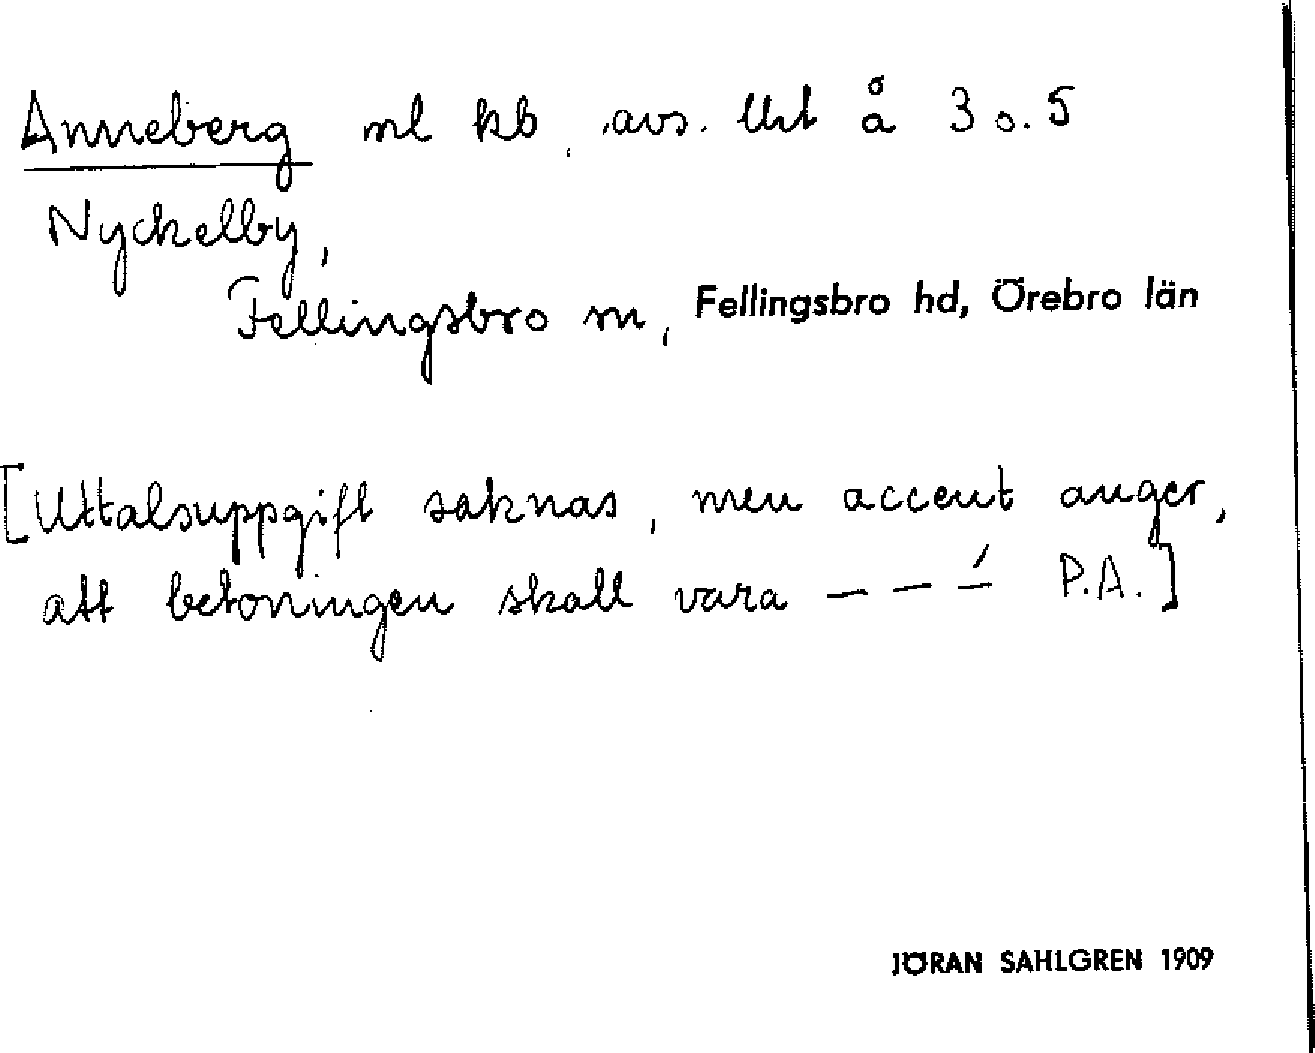 Anneberg ml kb, avs. lht å 3 o. 5
Nyckelby,
Fellingsbro sn, Fellingsbro hd, Örebro län
[Uttalsuppgift saknas, men accent anger,
att betoningen skall vara – – –́ P.A.]
JÖRAN SAHLGREN 1909